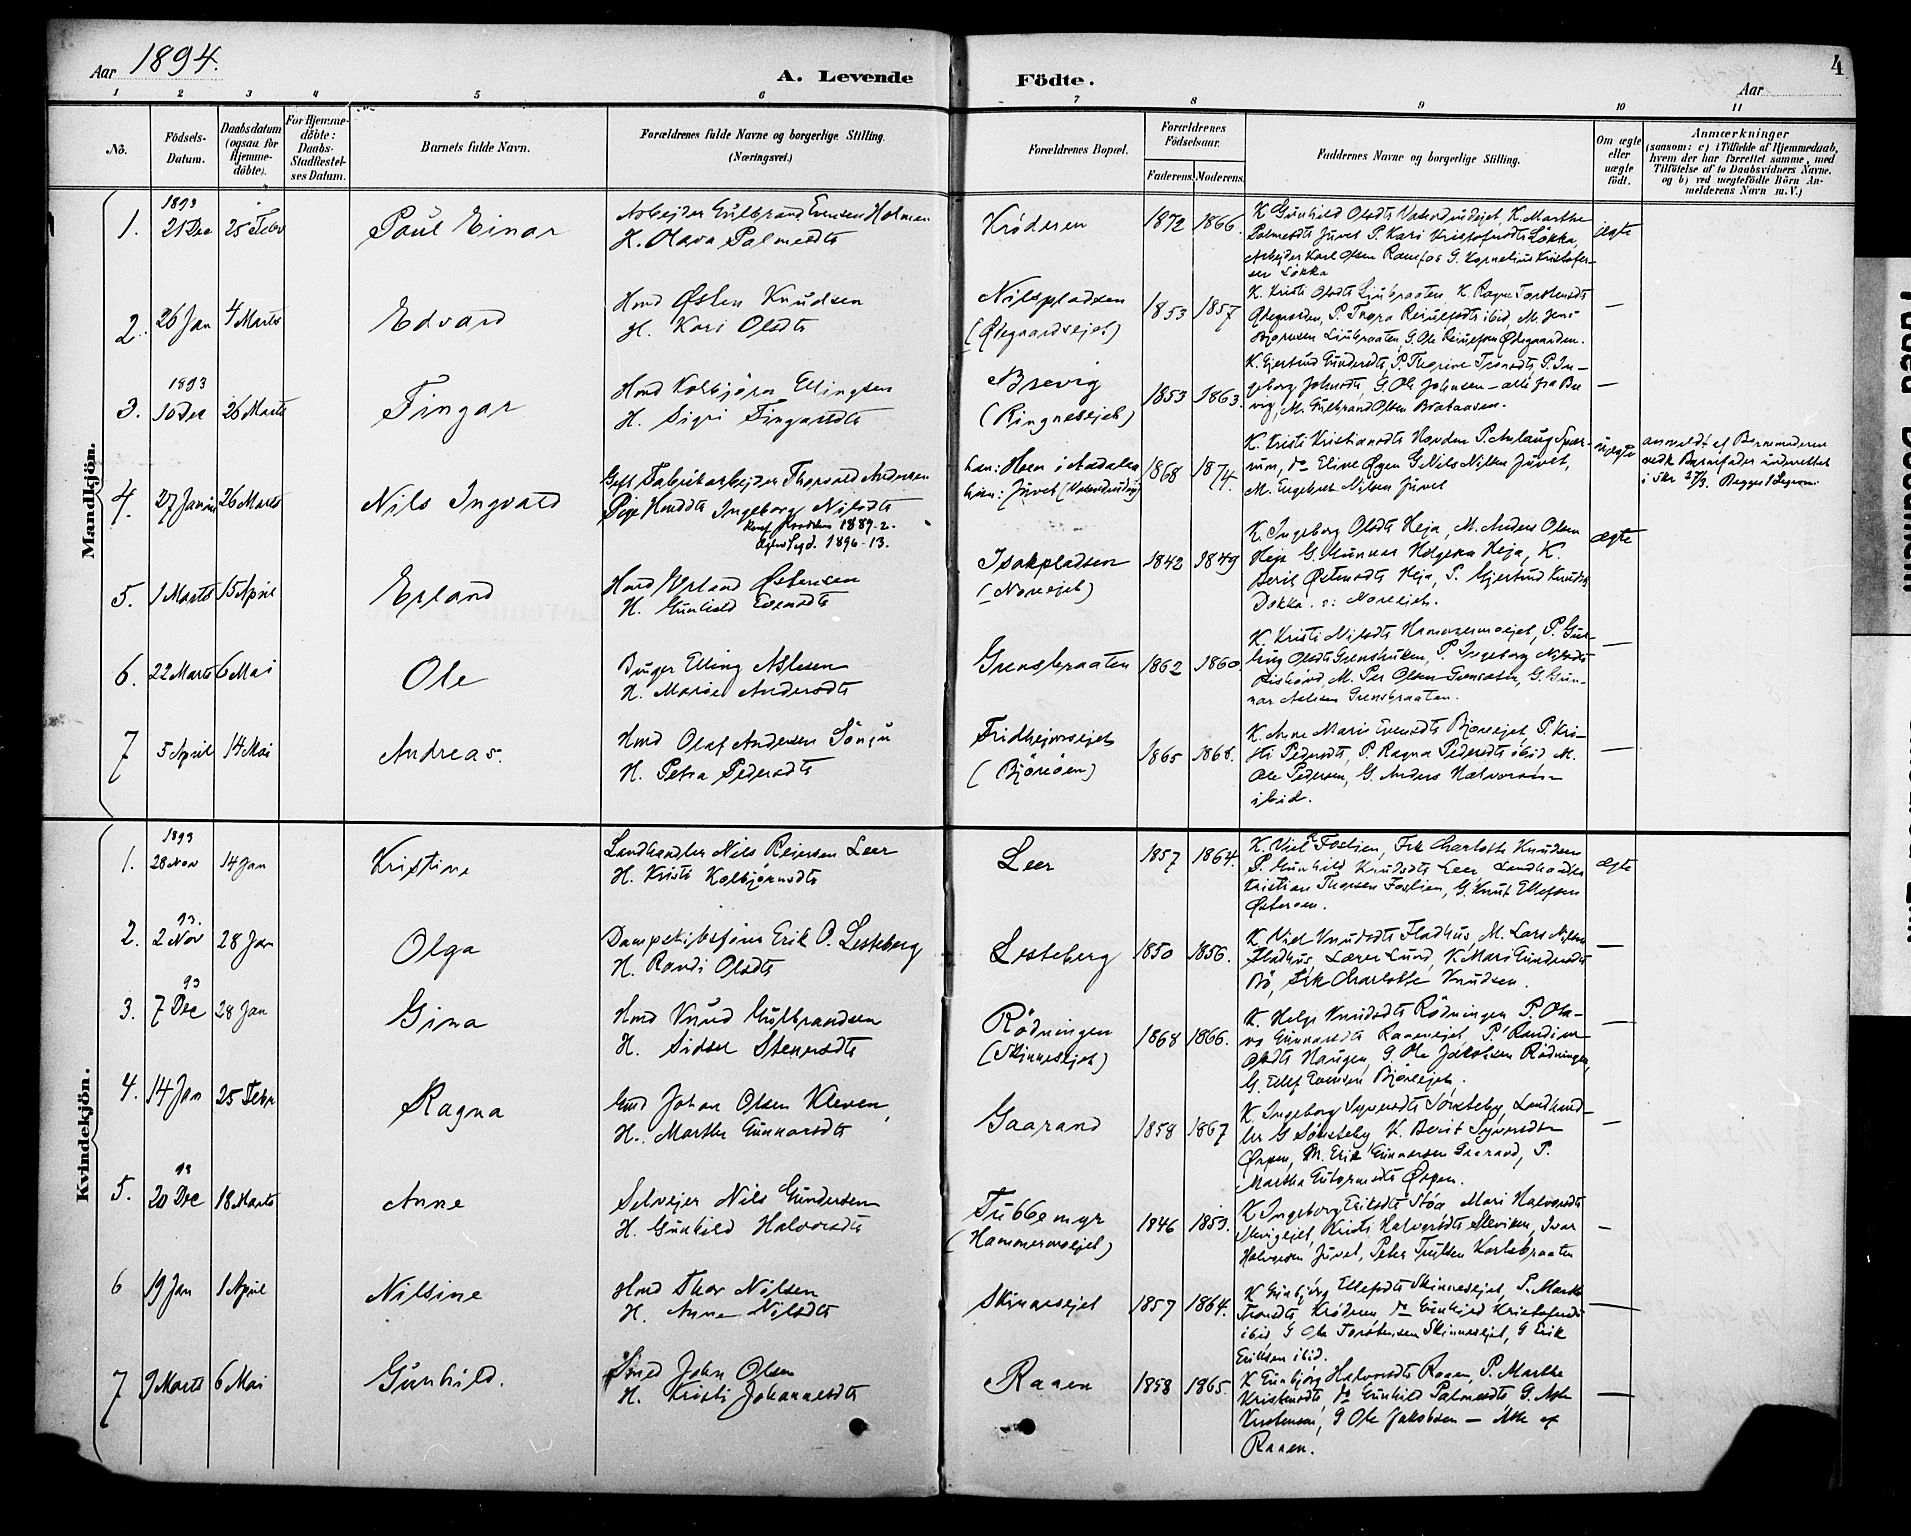 Aar 1894.
A. Levende
Födte.
Aar
4
1 2 3 4 5 6 7 8 9 10 11
Nö.
Födsels-
Datum.
Daabsdatum
(ogsaa for
Hjemme-
döbte).
For Hjemme-
döbte:
Daabs-
Stadfæstel-
ses Datum.
Barnets fulde Navn.
Forældrenes fulde Navne og borgerlige Stilling.
(Næringsvei.)
Forældrenes Bopæl.
Forældrenes
Födselsaar.
Faderens. Moderens.
Faddernes Navne og borgerlige Stilling.
Om ægte
eller
uægte
födt.
Anmærkninger
(saasom: c) i Tilfælde af Hjemmedaab,
hvem der har forrettet samme, med
Tilföielse af to Daabsvidners Navne,
og b) ved uægtefödte Börn An-
melderens Navn m. V.)
Mandkjön.
1893
1. 21 Dec 25 Febr
Paul Einar
Arbejder Gulbrand Evensen Holmen
H. Olava Palmesdts
Krøderen
1872 1866.
K. Gunhild Olsdts K. Marthe
Palmesdts Juvet P. Kari Kristofersdts Løkka,
Arbejder Karl Olsen Ramfos G. Kornelius Kristofer-
sen Løkka
ægte
2. 26 Jan 4 Marts
Edvard
Hmd Østen Knudsen
H. Kari Olsdts
Nilspladsen
(Ødegaardsejet)
1853 1857
K. Kristi Olsdts Ljubraaten, K. Ragne Torstensdts
Ødegaarden, P. Thora ibid, M. Jens
Ljubraaten, G. Ole Ødegaarden.
—
1893
3. 10 Dec 26 Marts
Fingar
Hmd Kolbjørn Ellingsen
H. Sigri Fingarsdts
Brevig
(Ringnesejet)
1853 1863.
K. Gjertrud Gundersdts, P. Thorine Tronsdts, P. In-
geborg Johnsdts, G. Ole Johnsen – alle fra Bre
vig, M. Gulbrand Olsen Braataasen.
—
4. 27 Januar 26 Marts
Nils Ingvald
Gift Fabrikarbejder Thorvald Andersen
Pige Ingeborg Nilsdts
1889. 2.
1896 - 13.
han: Hoen i Aadalen
hun: Juvet
1868 1874.
K. Kristi Kristiansdts P. Anlaug
do Eline Øyen G. Nils Nilsen Juvet,
M. Engebret Nilsen Juvet
uægte
anmeldt af Barnemoderen
Barnefader underrettet
i Skr 27/3. Begge
5. 1 Marts 15 April
Erland
Hmd Erland Østensen
H. Gunhild Evensdts
Isakpladsen
(Noreejet)
1842 1849
K. Ingeborg Olsdts Heja, M. Anders Olsen
Heja G. Gunnar Helgesen Heja, K.
Berit Østensdts Heja, P. Gjertrud Knudsd
Dokka. o: Noreejet.
ægte
6. 22 Marts 6 Mai
Ole
Elling Aslesen
H. Marie Andersdts
Grensbraaten
1862 1860
K Kristi Nilsdts Hammersmoejet, P. Gul-
Olsdts P. Ingeborg Nilsdts
M. Per Olsen G. Gun-
nar Aslesen Grensbraaten.
—
7 5 April 14 Mai
Andreas.
Hmd Olaf Andersen Sönju
H. Petra Pedersdts
Fridheimsejet
(Bjøreøen)
1865 1868.
K. Anne Marie Evensdts Bjøreejet, P. Kri-
sti Pedersdts, P. Ragna Pedersdts ibid, M.
Ole Pedersen, G. Anders Halvorsen
ibid.
—
Kvindekjön.
1893
1. 28 Nov 14 Jan
Kristine
Landhandler Nils Reiersen Leer
H. Kristi Kolbjørnsdts
Leer
1857 1864.
K. Foslien, Frk Charlotte Knudsen
P. Gunhild Knudsdts Leer, Landhandler
Kristian Thorsen Foslien, G. Knut Ellefsen
Østeroen.
ægte
93.
2. 2 Nov 28 Jan
Olga
Dampskibsfører Erik O. Lesteberg
H. Randi Olsdts
Lesteberg
1850 1856.
K. Knudsdts Fladhus, M. Lars Nilsen
Fladhus, Lærer Lund, K. Mari Gundersdts
Bö, Frk Charlotte Knudsen.
—
93
3. 7 Dec 28 Jan
Gina
Hmd Knud Gulbrandsen
H. Sidsel Stenersdts
Rødningen
(Skinnesejet)
1868 1866.
K. Helge Knudsdts Rødningen P. Ola-
va Gunnarsdts P. Randi
Olsdts Haugen, G. Ole Jakobsen Rødningen,
G. Ellef Evensen Bjøreejet.
—
4. 14 Jan 25 Febr
Ragna
Gmd Johan Olsen Kleven,
H. Marthe Gunnarsdts
Gaarand
1858 1867
K Ingeborg Syversdts Sønsteby, Landhand-
ler G Sønsteby, K. Berit Syversdtr
Ørpen, M. Erik Gunnarsen Gaarand, P.
Martha Ørpen.
—
93
5. 20 Dec 18 Marts
Anne
Selvejer Nils Gundersen
H. Gunhild Halvorsdts
Tubbemyr
(Hammersmoejet)
1846 1853.
K Ingeborg Eriksdts Mari Halvorsdts
Kristi Halvorsdts Ivar
Halvorsen Juvet, Peter
—
6 19 Jan 1 April
Nilsine
Hmd Thor Nilsen
H. Anne Nilsdts
Skinnesejet
1857 1864.
K Gunbjørg Ellefsdts Skinnesejet, P. Marthe
Tronsdts, Krøderen, do Gunhild Kristofersdts
ibid G Ole Torstensen Skinnesejet, G Erik
Eriksen ibid.
—
7 9 Marts 6 Mai
Gunhild.
Smed John Olsen
H. Kristi Johannesdts
Raaen
1858 1865.
K Gunbjørg Halvorsdts Raaen, P. Marthe
Kristensdts, do Gunhild Palmesdts G. Asle
Kristensen, G Ole Jakobsen —
Raaen.
—